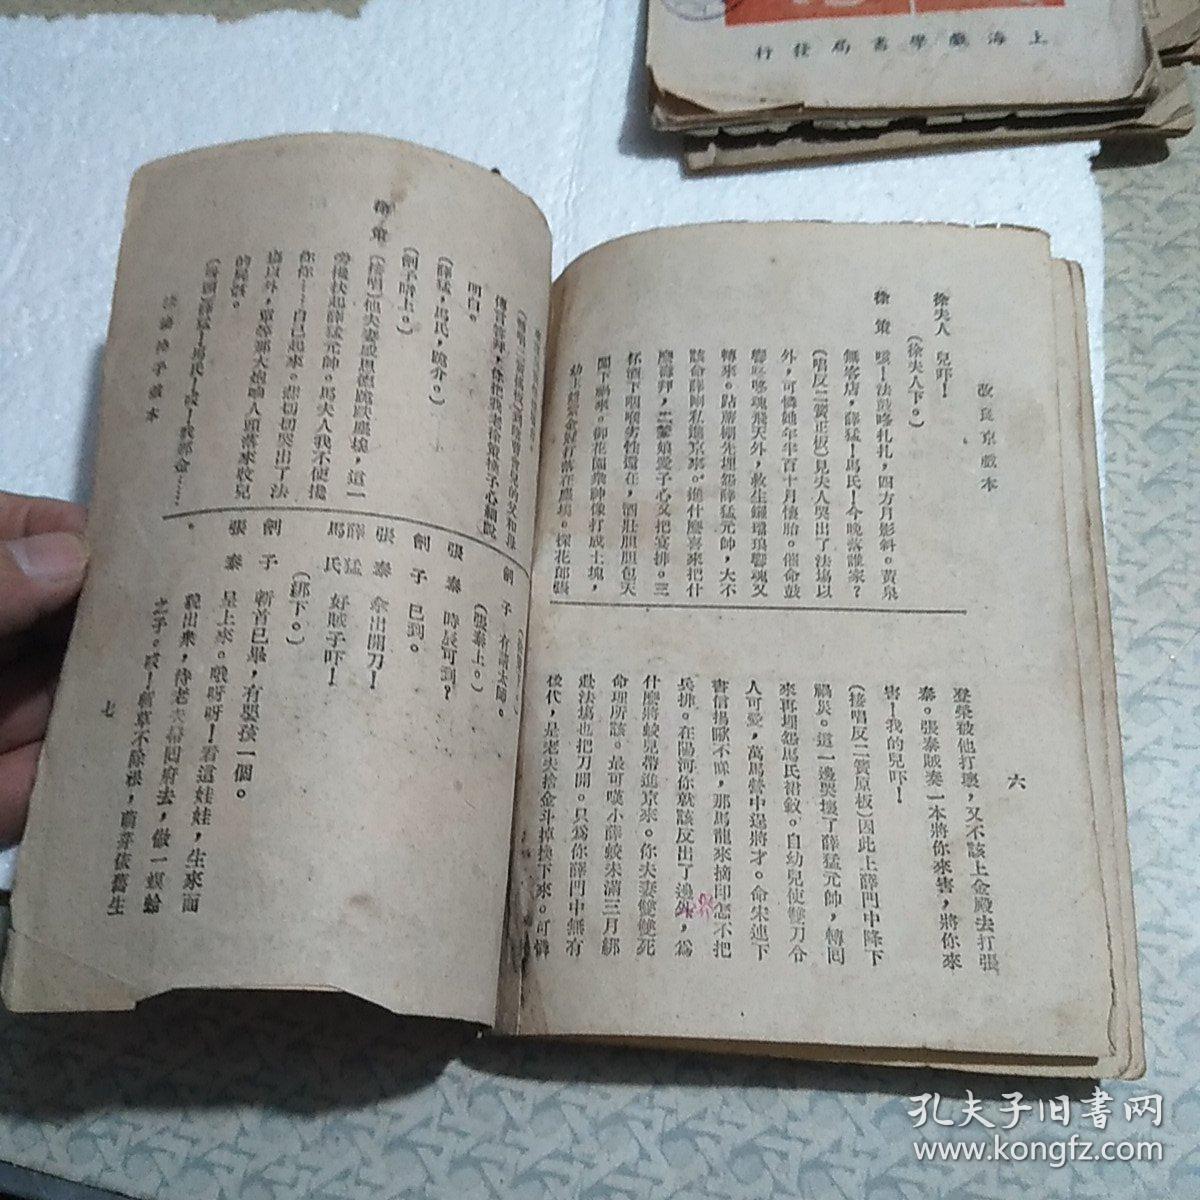 上海戲學書局發行
改良京戲本
六
徐夫人　兒吓！
（徐夫人下。）
徐　策　咳！法鼓咚扎扎，四方月影斜。黃泉
無客店，薛猛！馬氏！今晚落誰家？
（唱反二簧正板）見夫人哭出了法塲以
外，可憐她年半百十月懷胎。催命鼓
轉來。跕蓆棚先埋怨薛猛元帥，大不
該命薛剛私進京來。進什麼喜來把什
麼壽拜，二爹娘愛子心又把宴排。三
杯酒下咽喉劣性還在，酒壯胆胆包天
鬧下禍來。御花園衆神像打成土塊，
登榮被他打壞，又不該上金殿去打張
泰。張泰賊奏一本將你來害，將你來
害！我的兒吓！
（接唱反二簧原板）因此上薛門中降下
禍災。這一邊哭壞了薛猛元帥，轉回
來再埋怨馬氏裙釵。自幼兒使雙刀令
人可愛，萬馬營中逞將才。命宋連下
書信揚歐不睬，那馬龍來摘印怎不把
兵排。在陽河你就該反出了邊外，爲
什麼將蛟兒帶進京來。你夫妻雙雙死
命理所該。最可嘆小薛蛟未滿三月綁
赴法塲也把刀開。只爲你薛門中無有
後代，是老夫捨金斗掉換下來。可憐
明白。
（薛猛，馬氏，跪介。）
（劊子暗上。）
徐　策　（接唱）他夫妻感恩德跪缺塵埃，這一
旁攙扶起薛猛元帥。馬夫人我不便攙
你你……自己起來。悲切切哭出了法
塲以外，單等那大炮响人頭落來收兒
的屍骸。
劊　子　有請太師。
（張泰上。）
張　泰　時辰可到？
劊　子　已到。
張　泰　拿出開刀！
薛　猛
馬　氏　好賊子吓！
（綁下。）
劊　子　斬首已畢，有嬰孩一個。
張　泰　呈上來。哦呀呀！看這娃娃，生來面
貌出衆，待老夫帶回府去，做一螟蛉
之子。哎！斬草不除根，萌芽依舊生
七
孔夫子旧書网
www.kongfz.com